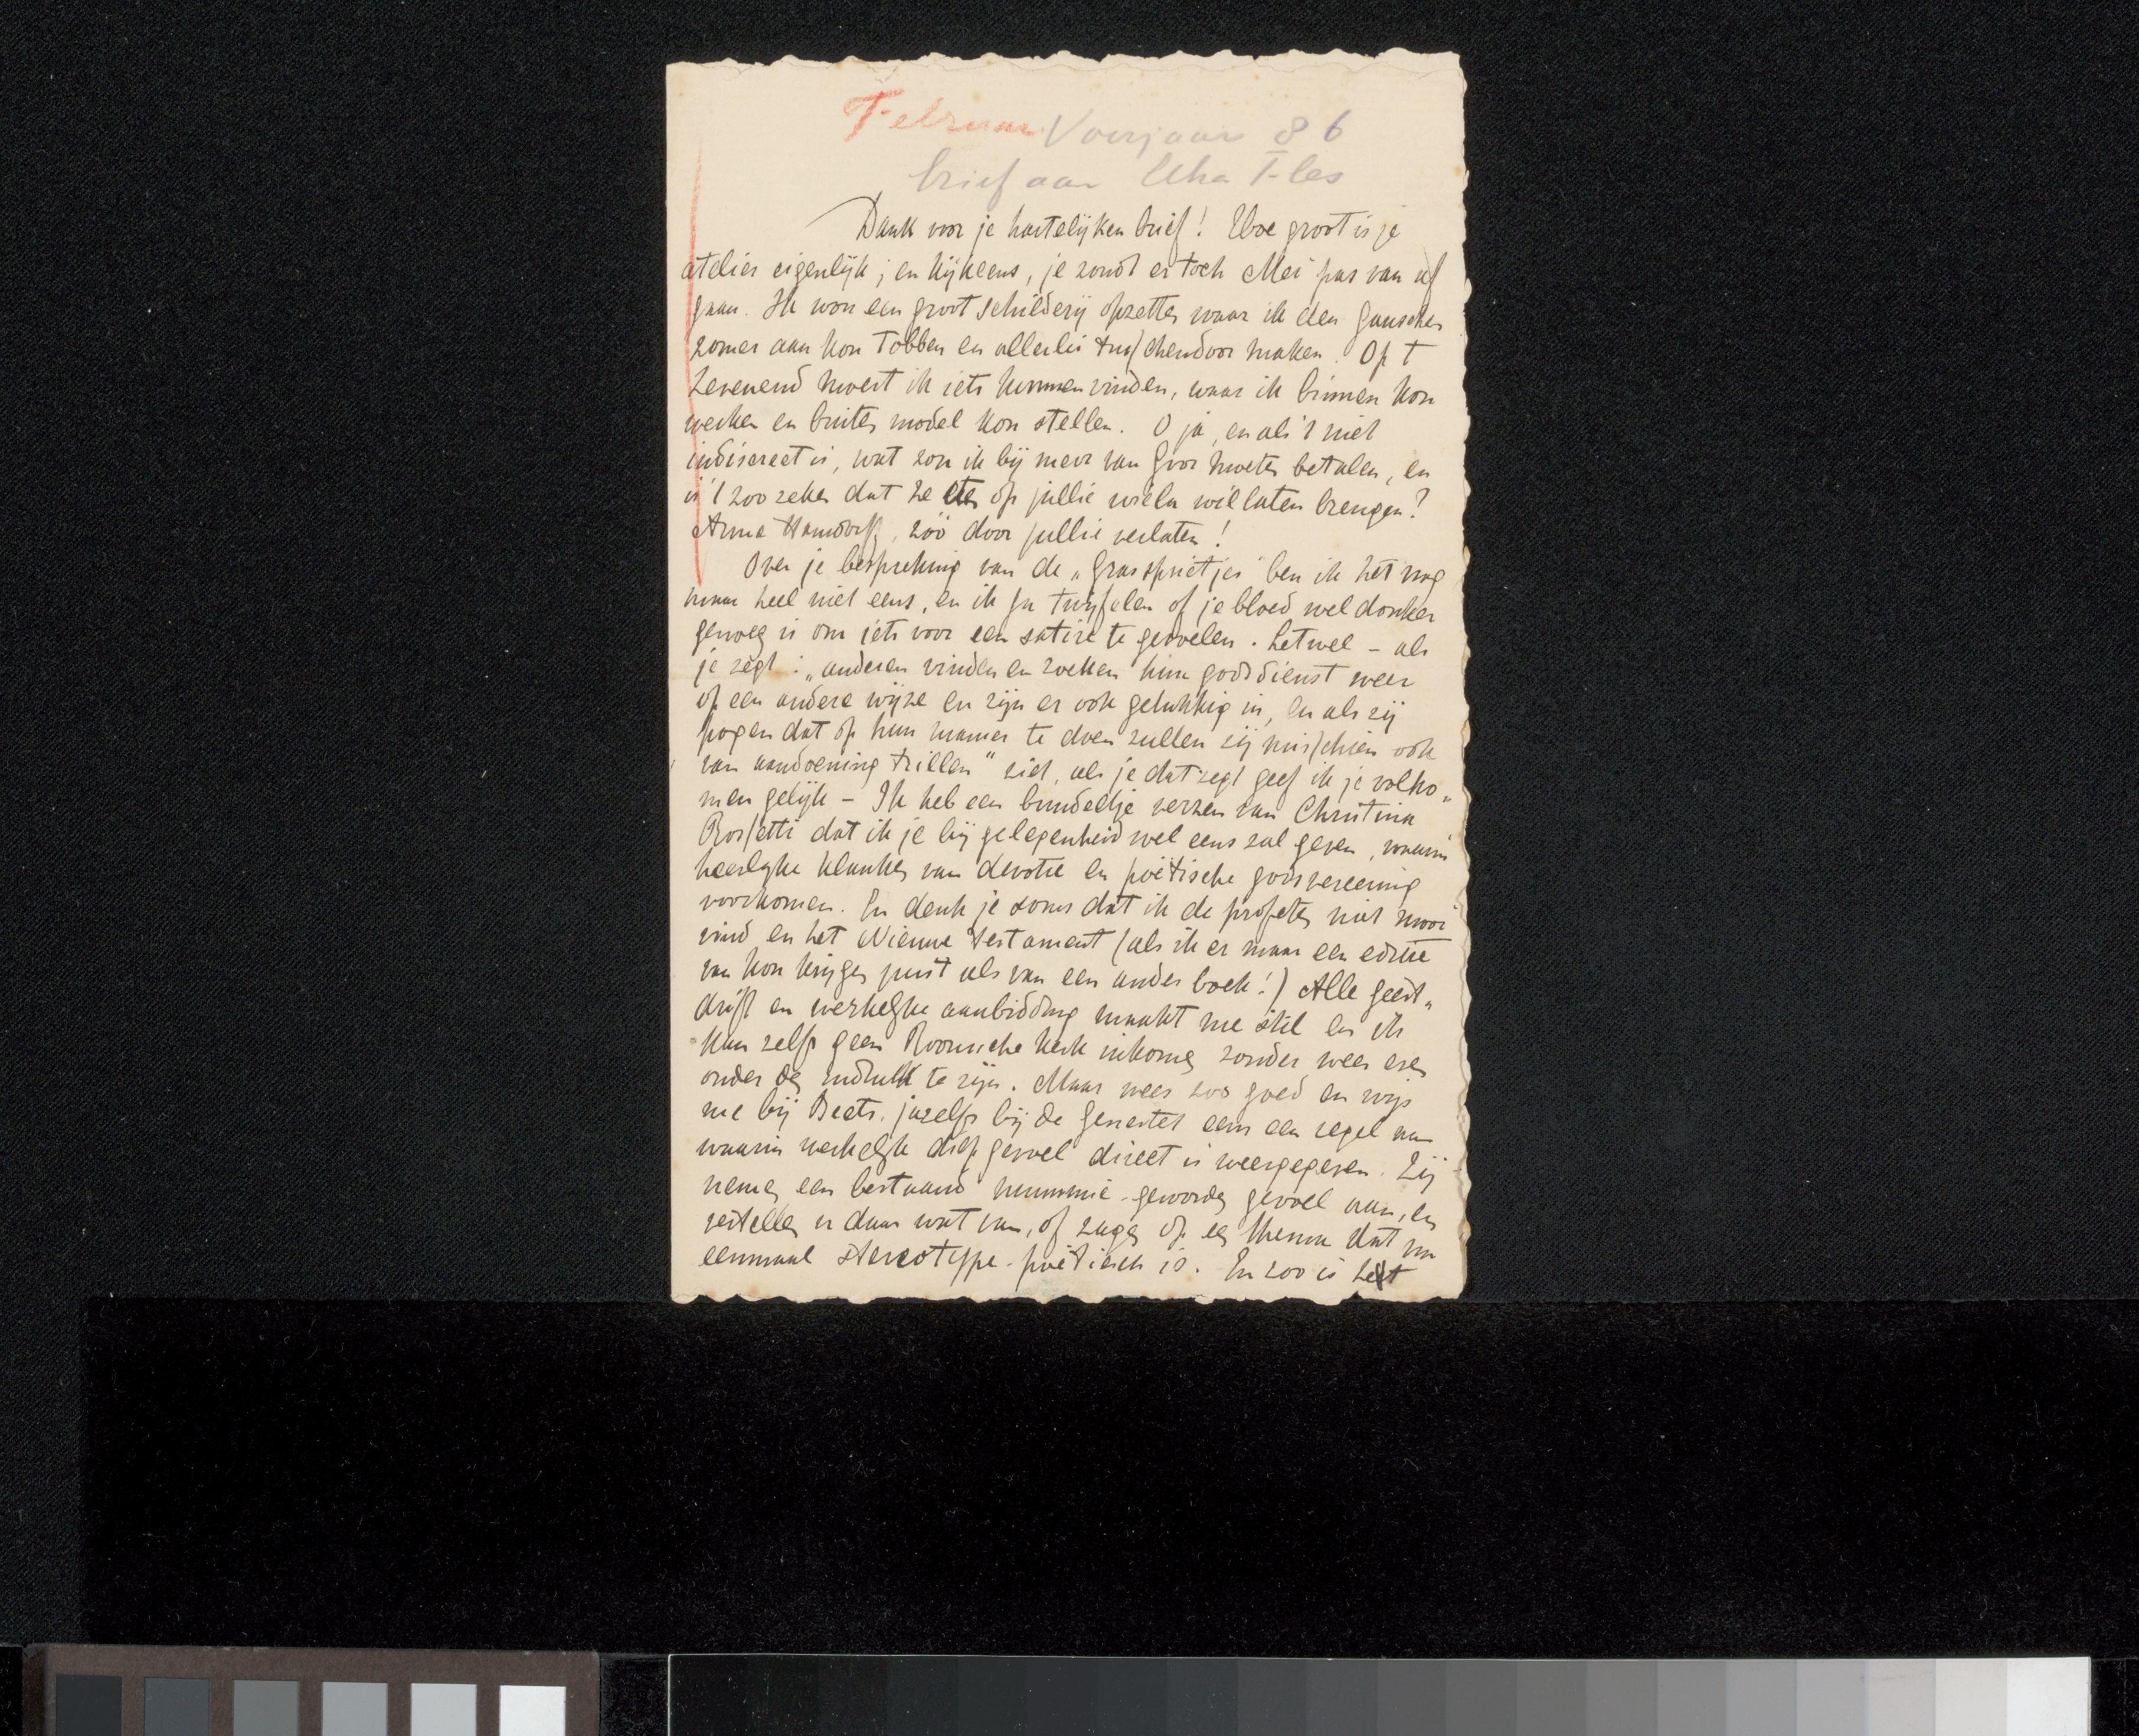 Februar. Voorjaar 86
brief aan
Dank voor je hartelyken brief! Hoe groot is je
atelier eigenlijk; en kijkeens, je zoudt er toch Mei pas van af
gaan. Ik wou een groot schilderij opzetten waar ik den ganschen
zomer aan kon tobben en allerlei tusschendoor maken. Op t
Zevenend moest ik iets kunnen vinden, waar ik binnen kon
werken en buiten model kon stellen. O ja, en als 't niet
indiscreet is, wat zou ik bij mevr van Goor moeten betalen, en
is 't zoo zeker dat ze op jullie willen wil laten brengen?
Arme Hamdorff, zóó door jullie verlaten!
Over je bespreking van de „Grassprietjes" ben ik het nog
maar heel niet eens, en ik ga twijfelen of je bloed wel donker
genoeg is om iets voor een satire te gevoelen. Letwel – als
je zegt: „anderen vinden en zoeken hun godsdienst weer
op een andere wijze en zijn er ook gelukkig in, en als zij
pogen dat op hun manier te doen zullen zij misschien ook
van aandoening trillen" ziet, als je dat zegt geef ik je volko„
men gelijk – Ik heb een bundeltje verzen van Christina
Rossetti dat ik je bij gelegenheid wel eens zal geven, waarin
heerlyke klanken van devotie en poëtische godsvereering
voorkomen. En denk je soms dat ik de profeten niet mooi
vind en het Nieuwe Testament (als ik er maar een editie
van kon krijgen juist als van een ander boek!) Alle geest„
drift en werkelyke aanbidding maakt me stil en ik
kan zelfs geen Roomsche kerk inkomen zonder weer even
onder den indruk te zijn. Maar wees zoo goed en wijs
me bij Beets, jazelfs bij de Genestet eens een regel aan
waarin werkelyk diep gevoel direct is weergegeven. Zij
nemen een bestaand mummie-geworden gevoel aan, en
vertellen er daar wat van, of zagen op een thema dat nu
eenmaal stereotype-poëtisch is. En zoo is het